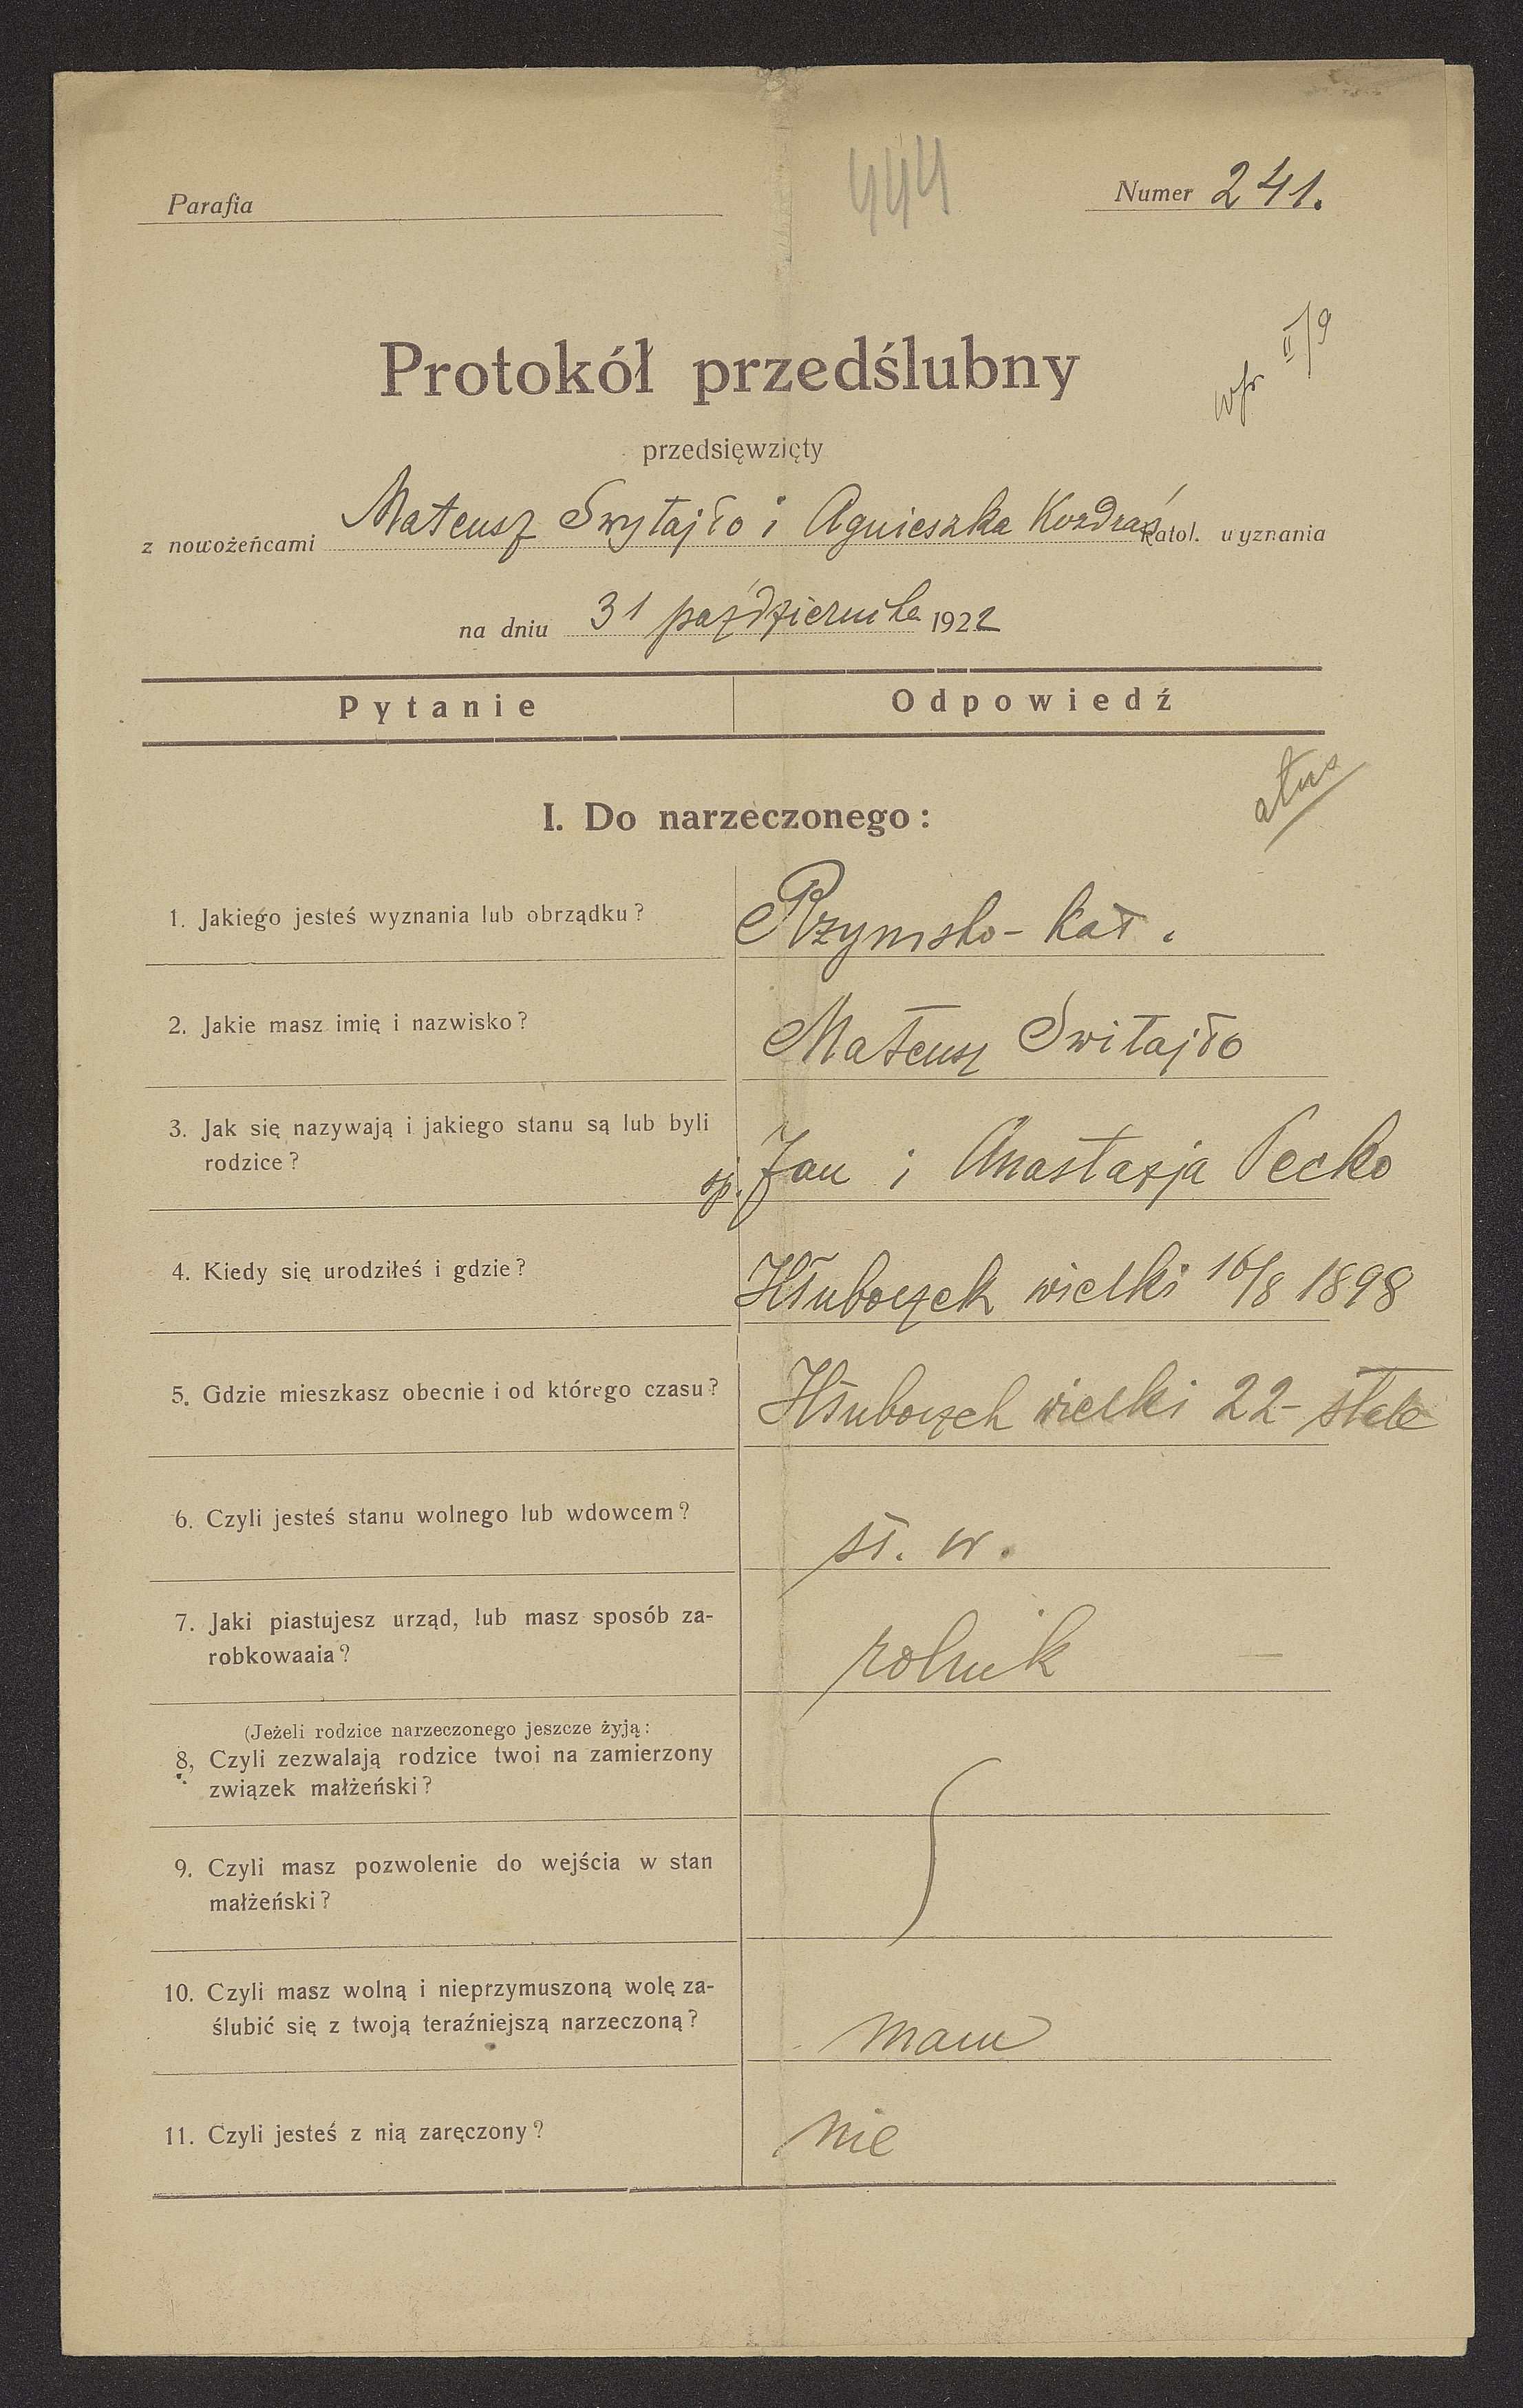 Parafia
444
Numer 241.
Protokół przedślubny
wp. II/9
przedsięwzięty
z nowożeńcami Mateusz Swytajło i Agnieszka Kozdraś katol. wyznania
na dniu 31 października 1922
Pytanie Odpowiedź
I. Do narzeczonego:
1. Jakiego jesteś wyznania lub obrządku? Rzymsko-kat.
2. Jakie masz imię i nazwisko? Mateusz Switajło
3. Jak się nazywają i jakiego stanu są lub byli
rodzice? sp. Jan i Anastazja Pecko
4. Kiedy się urodziłeś i gdzie? Hłuboczek wielki 16/8 1898
5. Gdzie mieszkasz obecnie i od którego czasu? Hłuboczek wielki 22-
6. Czyli jesteś stanu wolnego lub wdowcem? st. w.
7. Jaki piastujesz urząd, lub masz sposób za-
robkowaaia? rolnik —
(Jeżeli rodzice narzeczonego jeszcze żyją:
8, Czyli zezwalają rodzice twoi na zamierzony
związek małżeński?
9. Czyli masz pozwolenie do wejścia w stan
małżeński?
10. Czyli masz wolną i nieprzymuszoną wolę za-
ślubić się z twoją teraźniejszą narzeczoną? mam
11. Czyli jesteś z nią zaręczony? nie